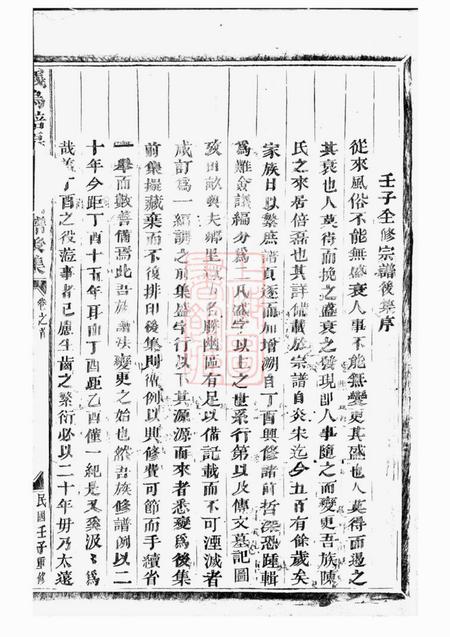 壬子全修宗譜後集序
從來風俗不能無盛衰人事不能無變更其盛也人莫得而遏之
其衰也人莫得而挽之盛衰之發現即人事隨之而變更吾族陳
氏之來居倍磊也其詳備載於宗譜自炎宋迄今五百有餘歲矣
家族日以繁庶譜頁遂而加增溯自丁酉興修諸前哲深恐踵輯
為難僉議編分為上凡盛字以上之世系行第以及傳文墓記圖
政田畝與夫鄉里名勝幽區有足以備記載而不可湮滅者
咸訂為一編謂之前集盛字行以下其源源而來者悉變為後集
前集擬藏棄而不復排印後集則循例以興修費可節而手續省
一舉而數善備焉此吾族譜法變更之始也然吾族修譜例以二
十年今距丁酉十五年耳而丁酉距乙酉僅一紀是又奚汲汲為
哉蓋丁酉之役蒞事者已慮生齒之繁衍必以二十年毋乃太遠
後集
卷之首
民國壬子重修